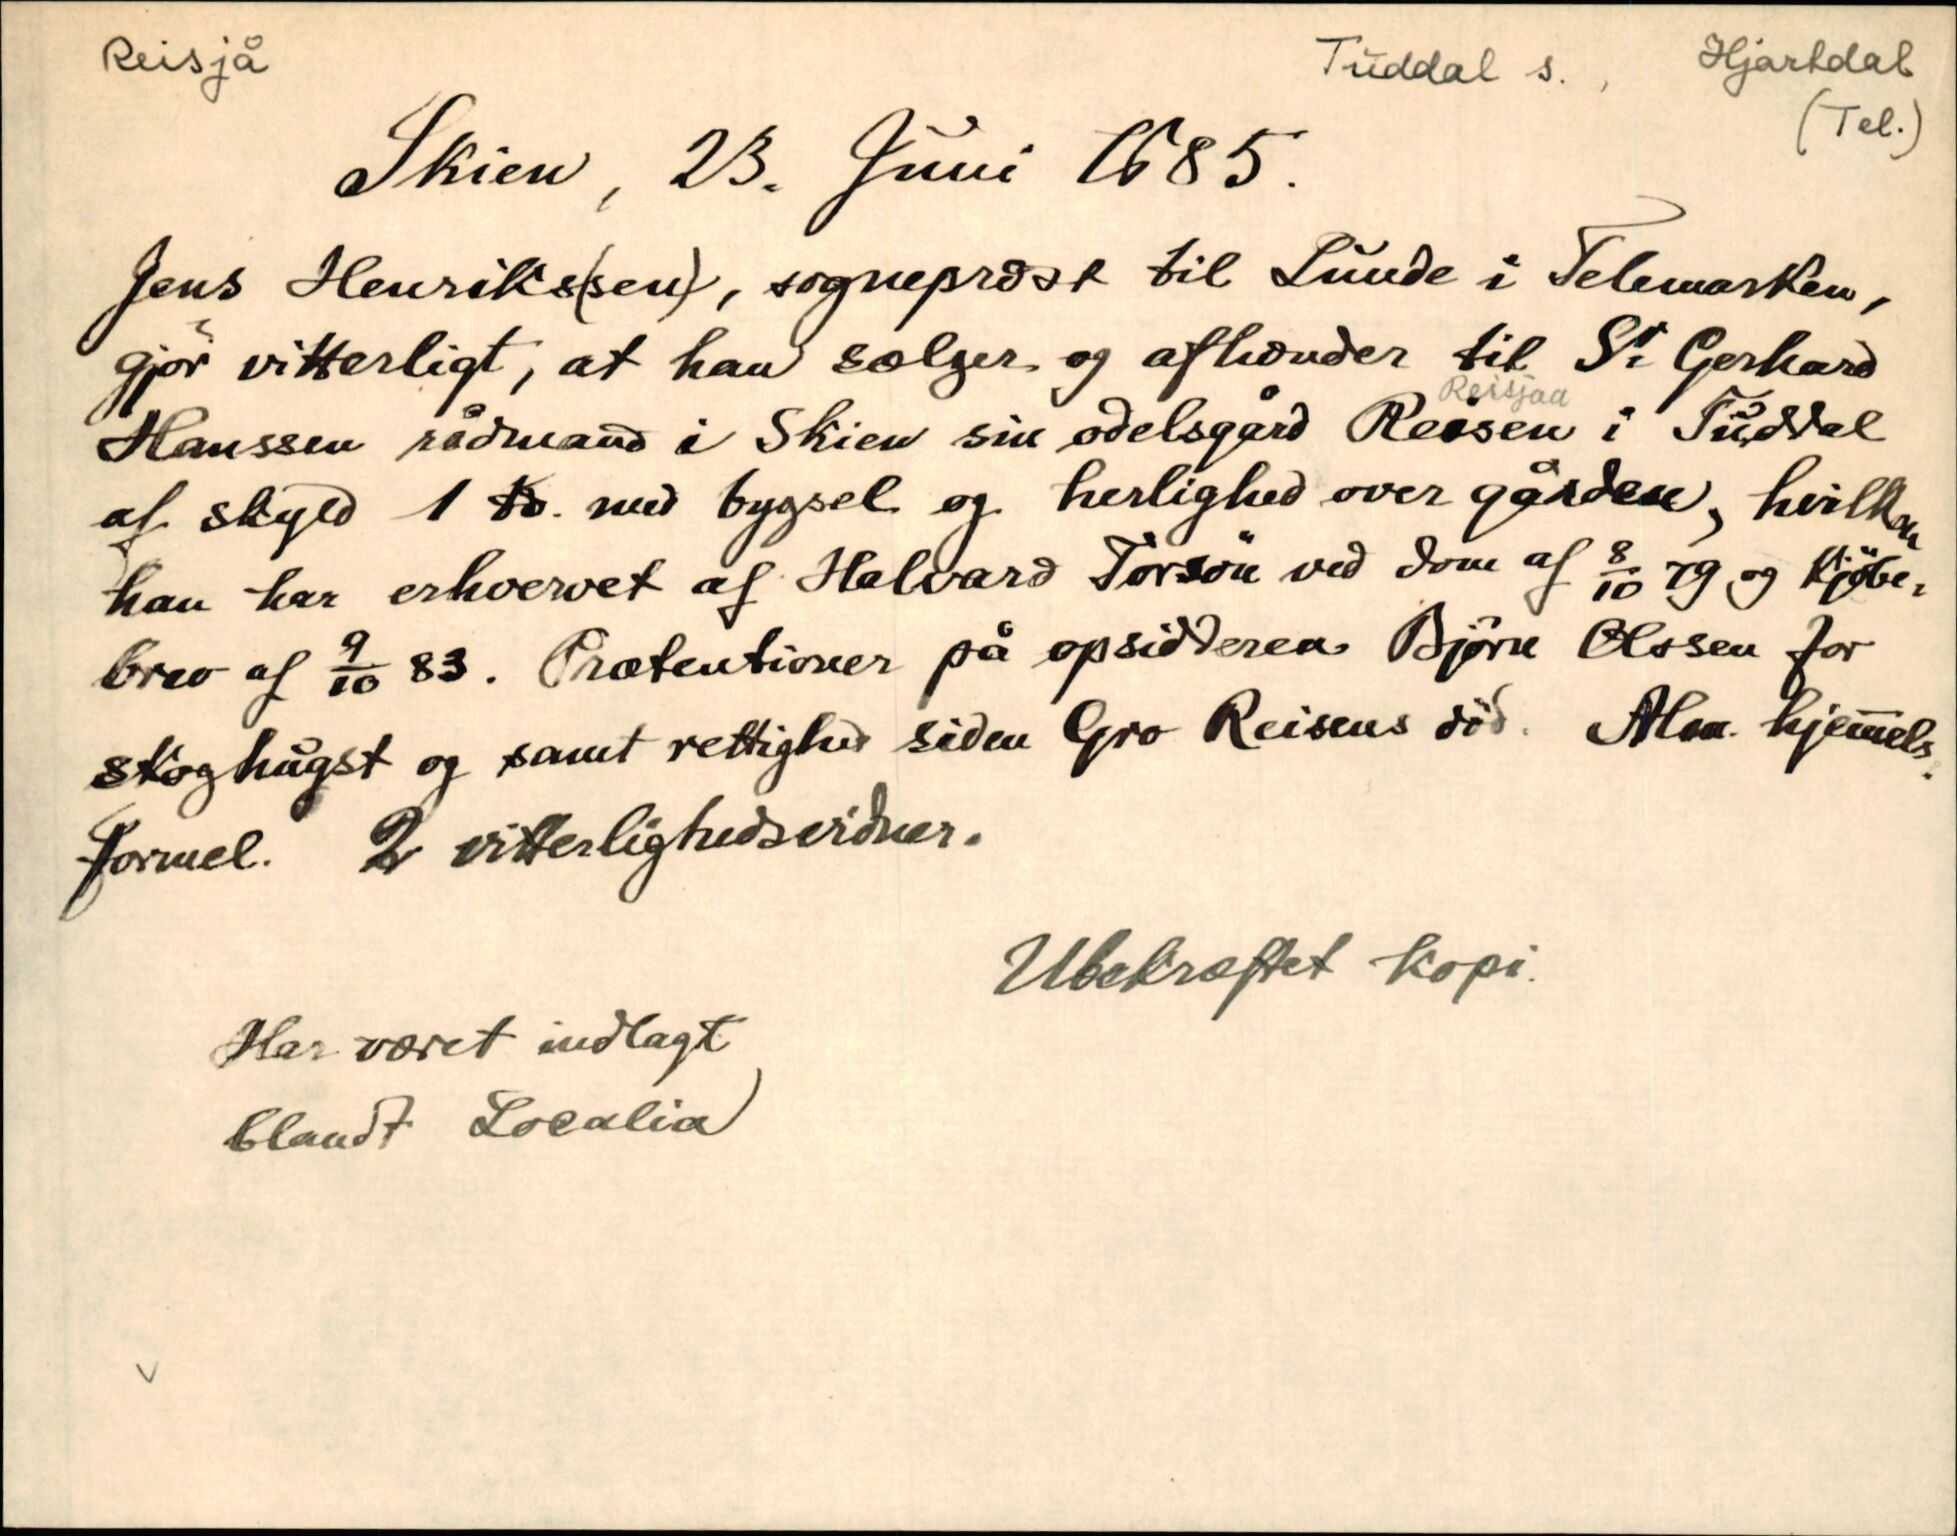 Reisjå Tuddal s., Hjartdal
(Tel.)
Skien, 23. Juni 1685.
Jens Henriks(sen), sognepræst til Lunde i Telemarken,
gjör vitterligt, at han sælger og afhænder til Sr Gerhard
Reisjaa
Hanssen rådmand i Skien sin odelsgård Reisen i Tuddal
af skyld 1 med bygsel og herlighed over gården, hvilken
han har erhvervet af Halvard Torsön ved dom af 8/10 79 og kjöbe-
brev af 9/10 83. Prætentioner på opsidderen Björn Olssen for
skoghugst og samt rettighed siden Gro Reisens död. Alm. hjem̅els-
formel. 2 vitterlighedsvidner.
Ubekræftet kopi.
Har været indlagt
blandt Localia
v